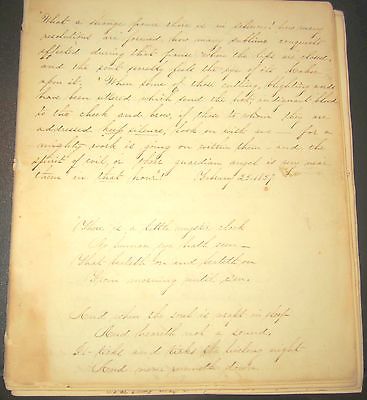 "What a strange power there is in silence! how many
resolutions are formed, how many sublime conquests
effected during that pause when the lips are closed,
and the soul secretly feels the eye of its Maker
upon it. When some of those cutting, blighting words
have been uttered which send the hot, indignant blood
to the cheek and brow, if those to whom they are
addressed keep silence, look on with awe — for a
mighty work is going on within them — and the
spirit of evil, or their guardian angel is very near
them in that hour."
"There is a little mystic clock
No human eye hath seen —
That beateth on and beateth on
From morning until e'en.
And when the soul is wrapt in sleep
And heareth not a sound,
It ticks and ticks the livelong night
And never runneth down.